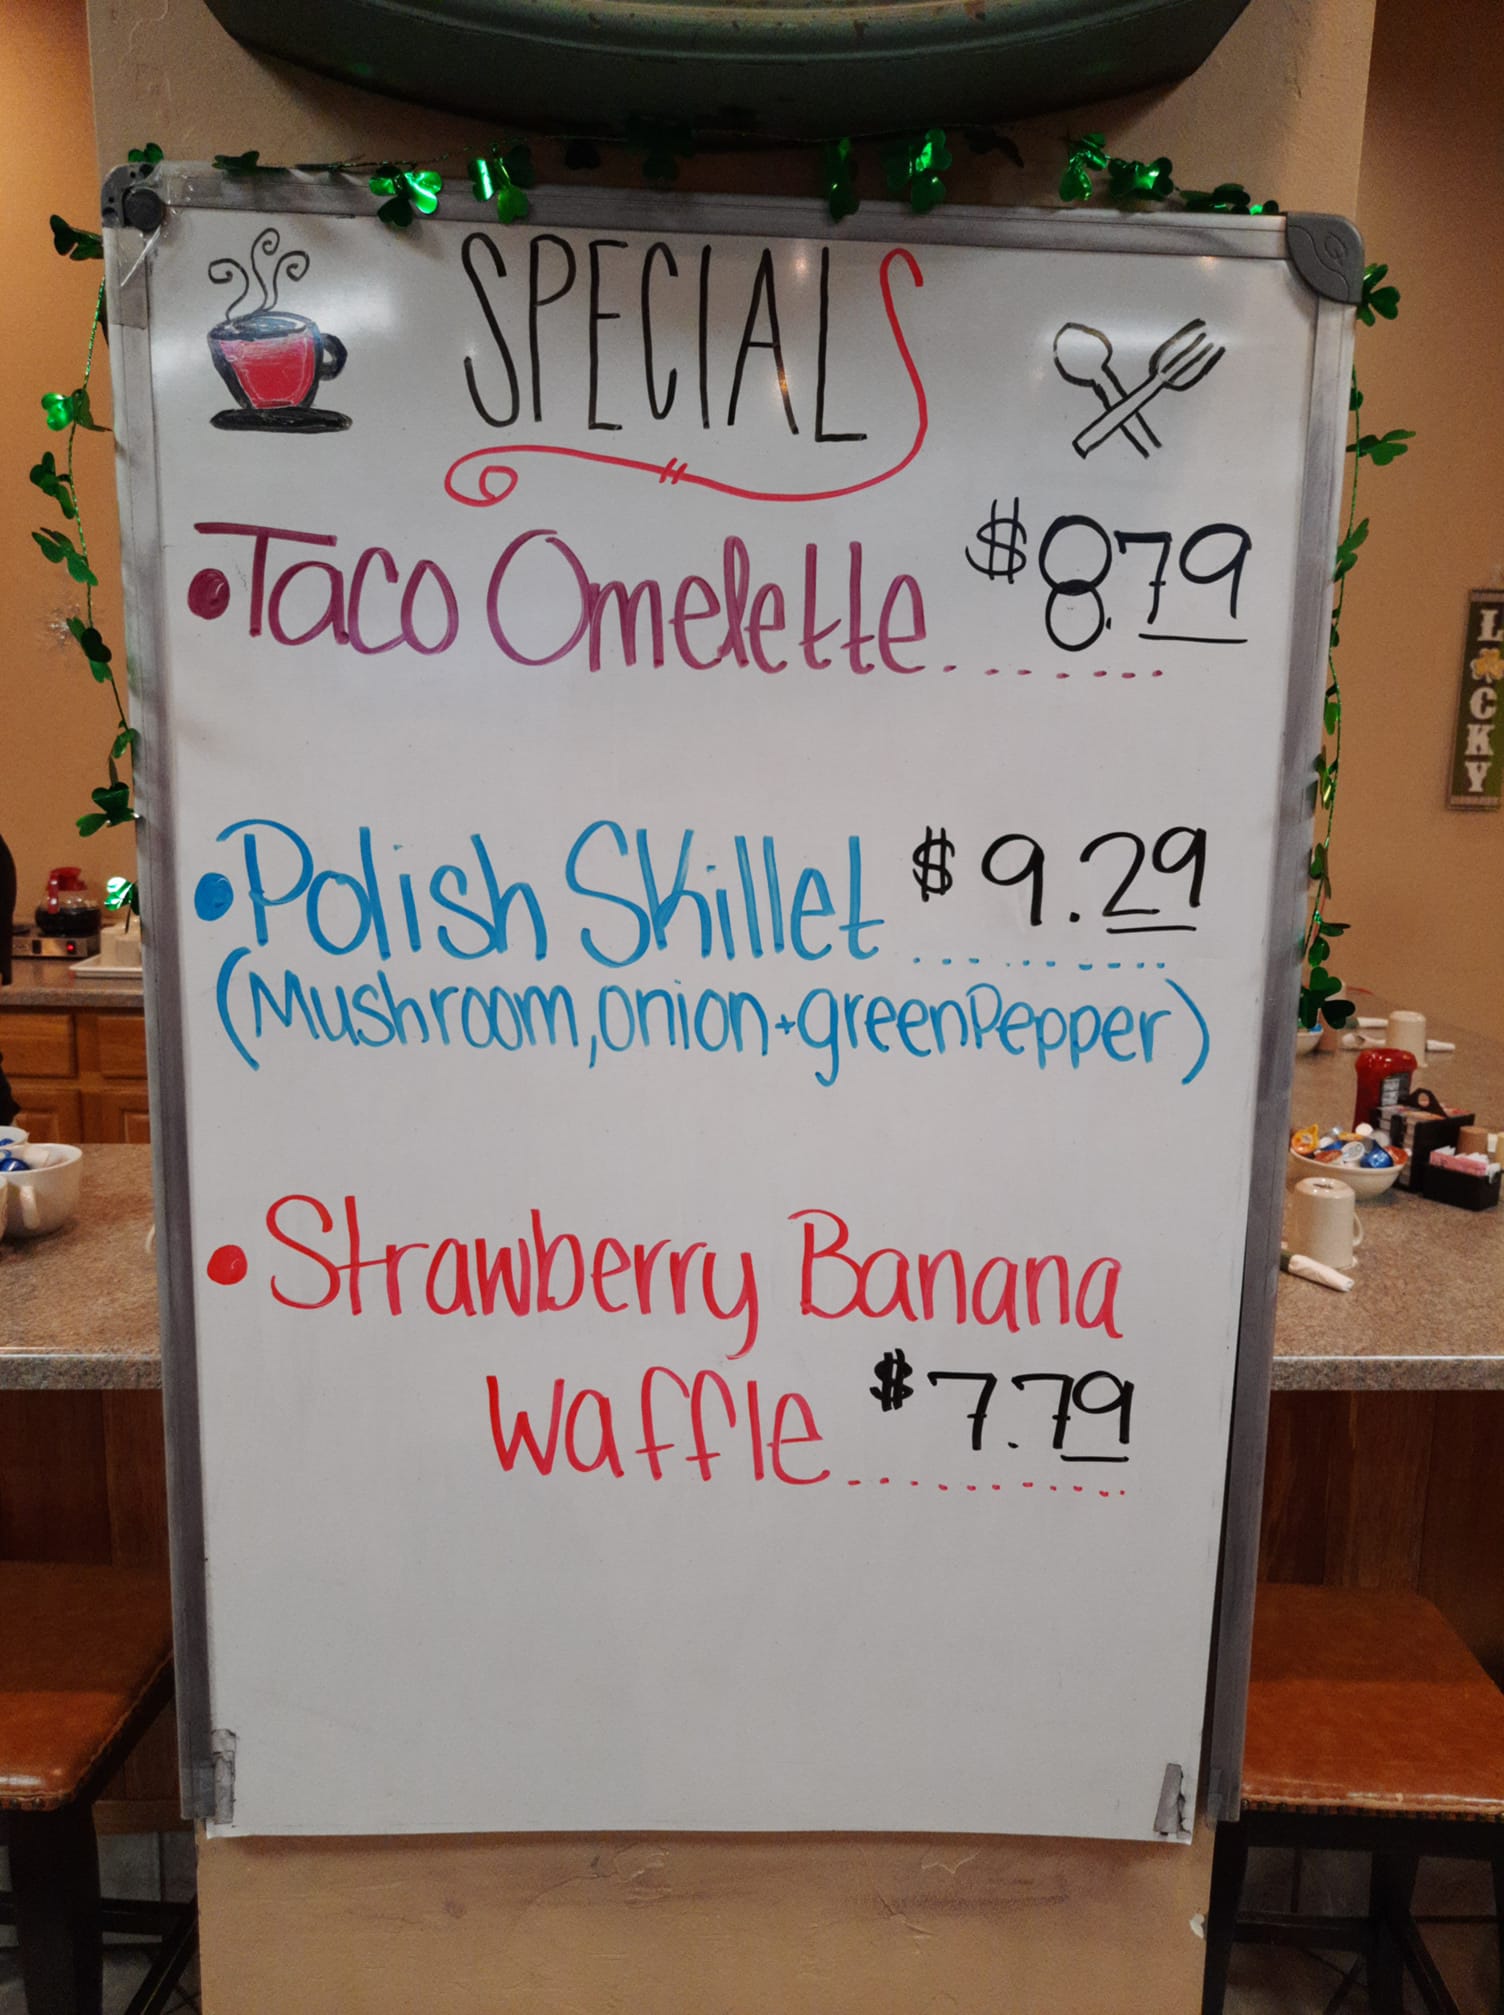 SPECIALS
• Taco Omelette....... $8.79
• Polish Skillet.......... $9.29
(Mushroom, onion + green Pepper)
• Strawberry Banana
Waffle.......... $7.79
LUCKY